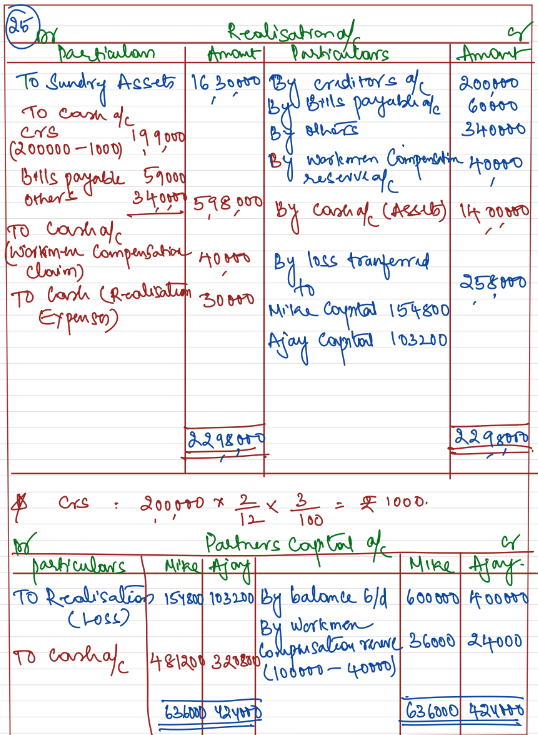 25
Dr Realisation a/c Cr
Particulars Amount Particulars Amount
To Sundry Assets 1630000 By creditors a/c 200,000
By Bills payable a/c 60000
To cash a/c
crs 199,000 By others 340000
(200000 - 1000)
By workmen Compensation 40000
reserve a/c
Bills payable 59000
others 340000 598,000 By cash a/c (Assets) 1400000
To Cash a/c
(Workmen Compensation 40000
Claim)
By loss tranferred 258000
to
To Cash (Realisation 30000
Expenses)
Mike Capital 154800
Ajay Capital 103200
2298000 2298000
Crs : 200,000 × 2/12 × 3/100 = ₹ 1000.
Dr Partners Capital a/c Cr
particulars Mike Ajay Mike Ajay
To Realisation 154800 103200 By balance b/d 600000 400000
(Loss)
By workmen
compensation reserve 36000 24000
(100000 - 40000)
To Cash a/c 481200 320800
636000 424000 636000 424000